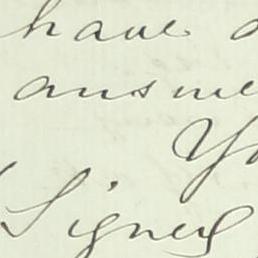 have
answe
Yo
(Signed